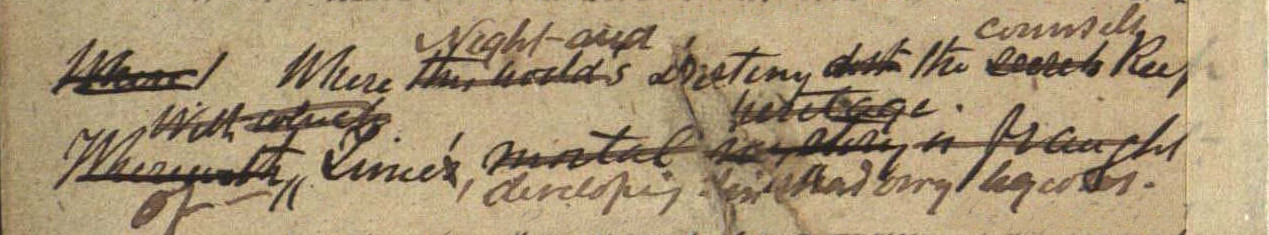 Night and counsels
Where this world's Destiny doth the secrets Keep
With heritage.
Wherewith Time's, mortal mystery is fraught
of developing in shadowy